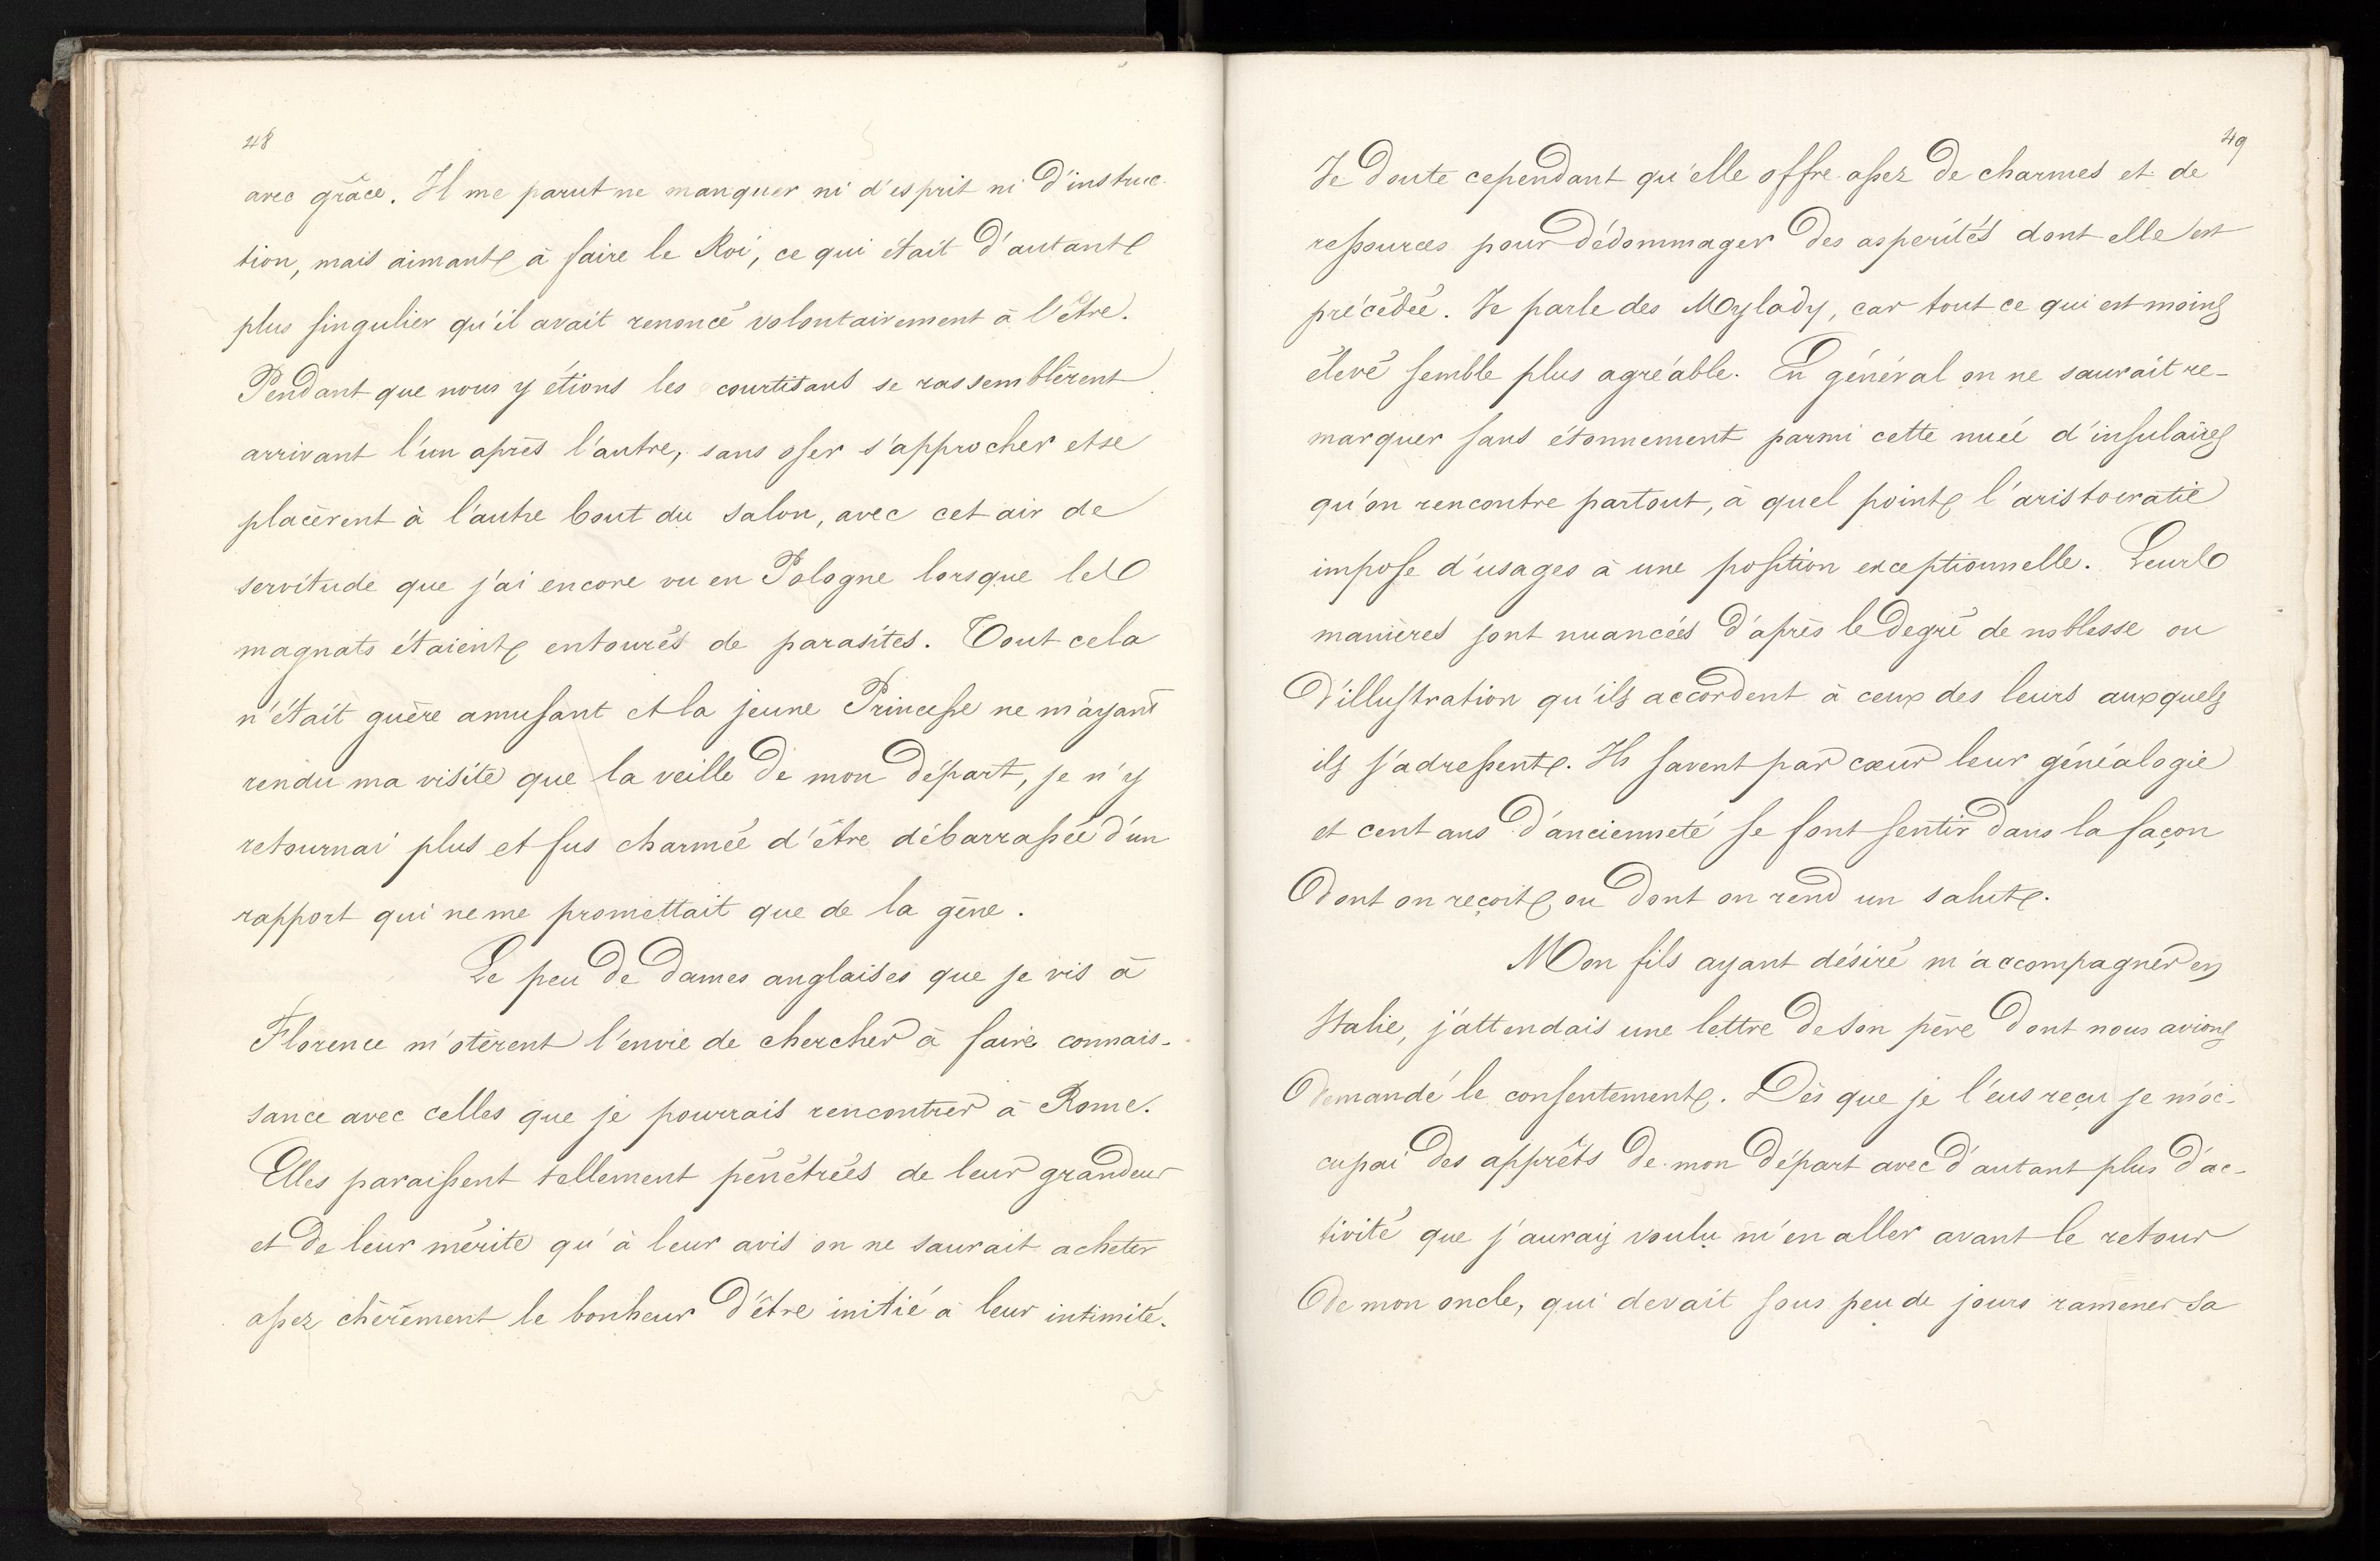 48
avec grâce. Il me parut ne manquer ni d'esprit ni d'instruc-
tion, mais aimant à faire le Roi, ce qui était d'autant
plus singulier qu'il avait renoncé volontairement à l'être.
Pendant que nous y étions les courtisans se rassemblèrent
arrivant l'un après l'autre, sans oser s'approcher et se
placèrent à l'autre bout du salon, avec cet air de
servitude que j'ai encore vu en Pologne lorsque les
magnats étaient entourés de parasites. Tout cela
n'était guère amusant et la jeune Princesse ne m'ayant
rendu ma visite que la veille de mon départ, je n'y
retournai plus et fus charmée d'être débarrassée d'un
rapport qui ne me promettait que de la gêne.
Le peu de dames anglaises que je vis à
Florence m'otèrent l'envie de chercher à faire connais-
sance avec celles que je pourrais rencontrer à Rome.
Elles paraissent tellement pénétrées de leur grandeur
et de leur mérite qu'à leur avis on ne saurait acheter
assez chèrement le bonheur d'être initié à leur intimité.
49
Je doute cependant qu'elle offre assez de charmes et de
ressources pour dédommager des asperités dont elle est
précédée. Je parle des Mylady, car tout ce qui est moins
élevé semble plus agréable. En général on ne saurait re-
marquer sans étonnement parmi cette nuée d'insulaires
qu'on rencontre partout, à quel point l'aristocratie
impose d'usages à une position exceptionnelle. Leurs
manières sont nuancées d'après le degré de noblesse ou
d'illustration qu'ils accordent à ceux des leurs auxquels
ils s'adressent. Ils savent par cœur leur généalogie
et cent ans d'ancienneté se font sentir dans la façon
dont on reçoit ou dont on rend un salut.
Mon fils ayant désiré m'accompagner en
Italie, j'attendais une lettre de son père dont nous avions
demandé le consentement. Dès que je l'eus reçu je m'oc-
cupai des apprêts de mon départ avec d'autant plus d'ac-
tivité que j'aurais voulu m'en aller avant le retour
de mon oncle, qui devait sous peu de jours ramener sa